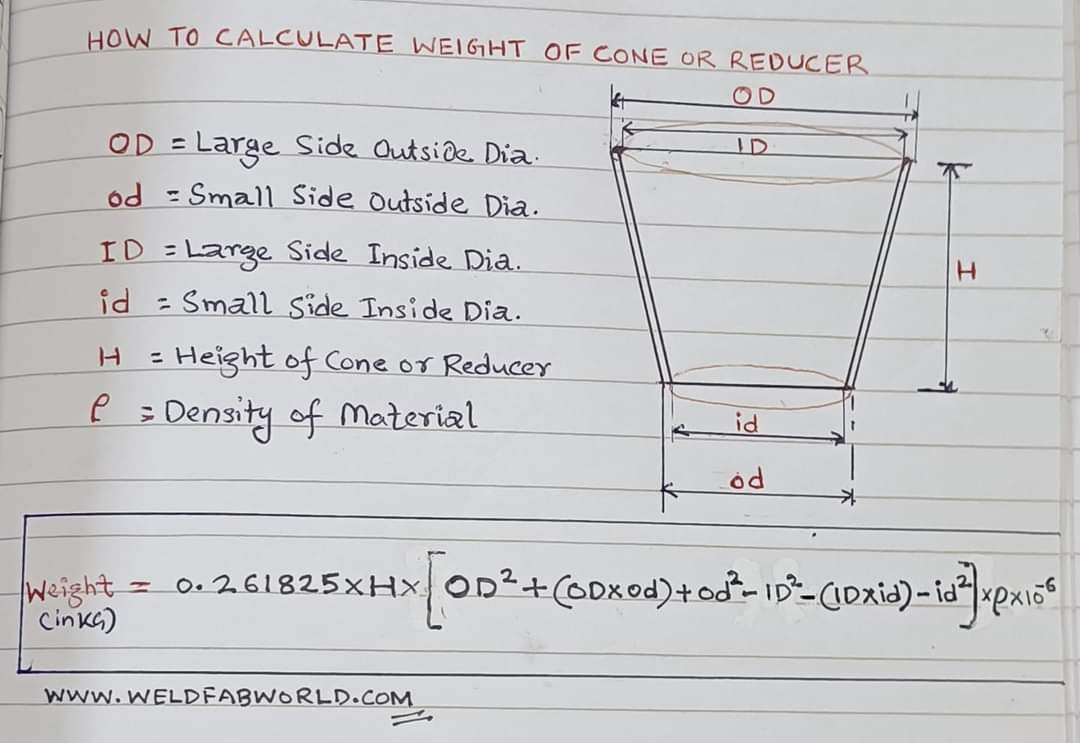 HOW TO CALCULATE WEIGHT OF CONE OR REDUCER
OD = Large Side Outside Dia.
od = Small Side Outside Dia.
ID = Large Side Inside Dia.
id = Small Side Inside Dia.
H = Height of Cone or Reducer
ρ = Density of Material
OD
ID
H
id
od
Weight = 0.261825×H×[OD²+(OD×od)+od²-ID²-(ID×id)-id²]×ρ×10⁻⁶
(in KG)
WWW.WELDFABWORLD.COM